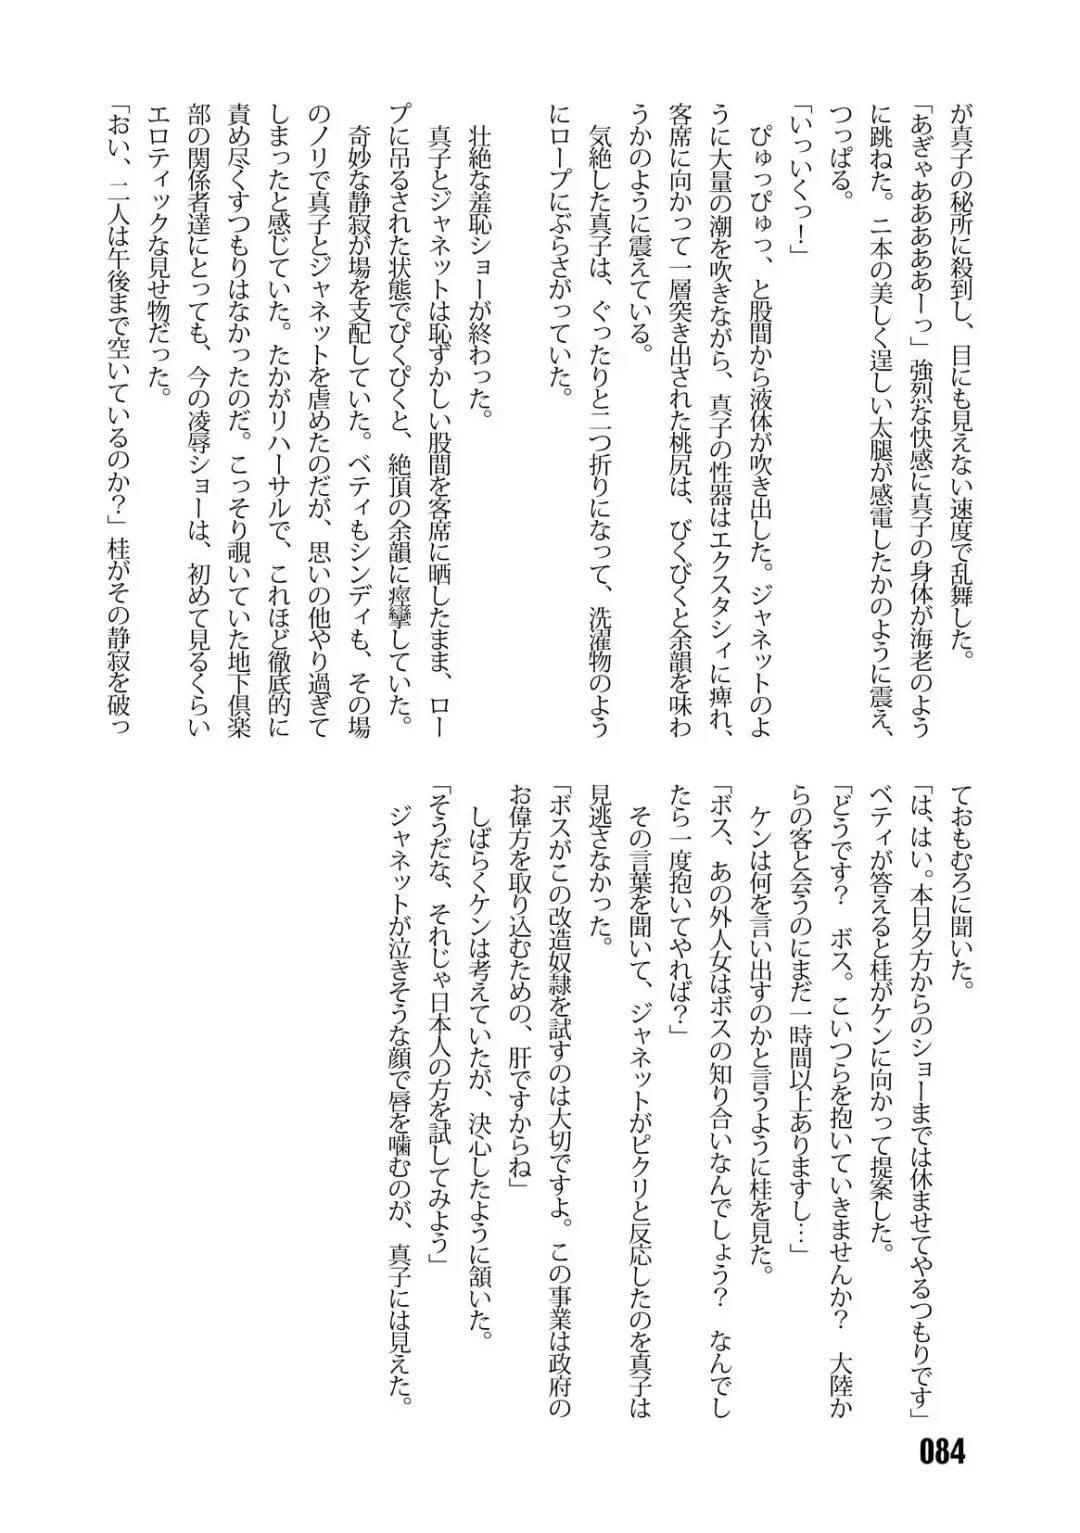 が真子の秘所に殺到し、目にも見えない速度で乱舞した。
「あぎゃあああああーっ」強烈な快感に真子の身体が海老のよう
に跳ねた。二本の美しく逞しい太腿が感電したかのように震え、
つっぱる。
「いっいくっ！」
ぴゅっぴゅっ、と股間から液体が吹き出した。ジャネットのよ
うに大量の潮を吹きながら、真子の性器はエクスタシィに痺れ、
客席に向かって一層突き出された桃尻は、びくびくと余韻を味わ
うかのように震えている。
気絶した真子は、ぐったりと二つ折りになって、洗濯物のよう
にロープにぶらさがっていた。
壮絶な羞恥ショーが終わった。
真子とジャネットは恥ずかしい股間を客席に晒したまま、ロー
プに吊るされた状態でぴくぴくと、絶頂の余韻に痙攣していた。
奇妙な静寂が場を支配していた。ベティもシンディも、その場
のノリで真子とジャネットを虐めたのだが、思いの他やり過ぎて
しまったと感じていた。たかがリハーサルで、これほど徹底的に
責め尽くすつもりはなかったのだ。こっそり覗いていた地下倶楽
部の関係者達にとっても、今の凌辱ショーは、初めて見るくらい
エロティックな見せ物だった。
「おい、二人は午後まで空いているのか？」桂がその静寂を破っ
ておもむろに聞いた。
「は、はい。本日夕方からのショーまでは休ませてやるつもりです」
ベティが答えると桂がケンに向かって提案した。
「どうです？　ボス。こいつらを抱いていきませんか？　大陸か
らの客と会うのにまだ一時間以上ありますし…」
ケンは何を言い出すのかと言うように桂を見た。
「ボス、あの外人女はボスの知り合いなんでしょう？　なんでし
たら一度抱いてやれば？」
その言葉を聞いて、ジャネットがピクリと反応したのを真子は
見逃さなかった。
「ボスがこの改造奴隷を試すのは大切ですよ。この事業は政府の
お偉方を取り込むための、肝ですからね」
しばらくケンは考えていたが、決心したように頷いた。
「そうだな、それじゃ日本人の方を試してみよう」
ジャネットが泣きそうな顔で唇を噛むのが、真子には見えた。
084